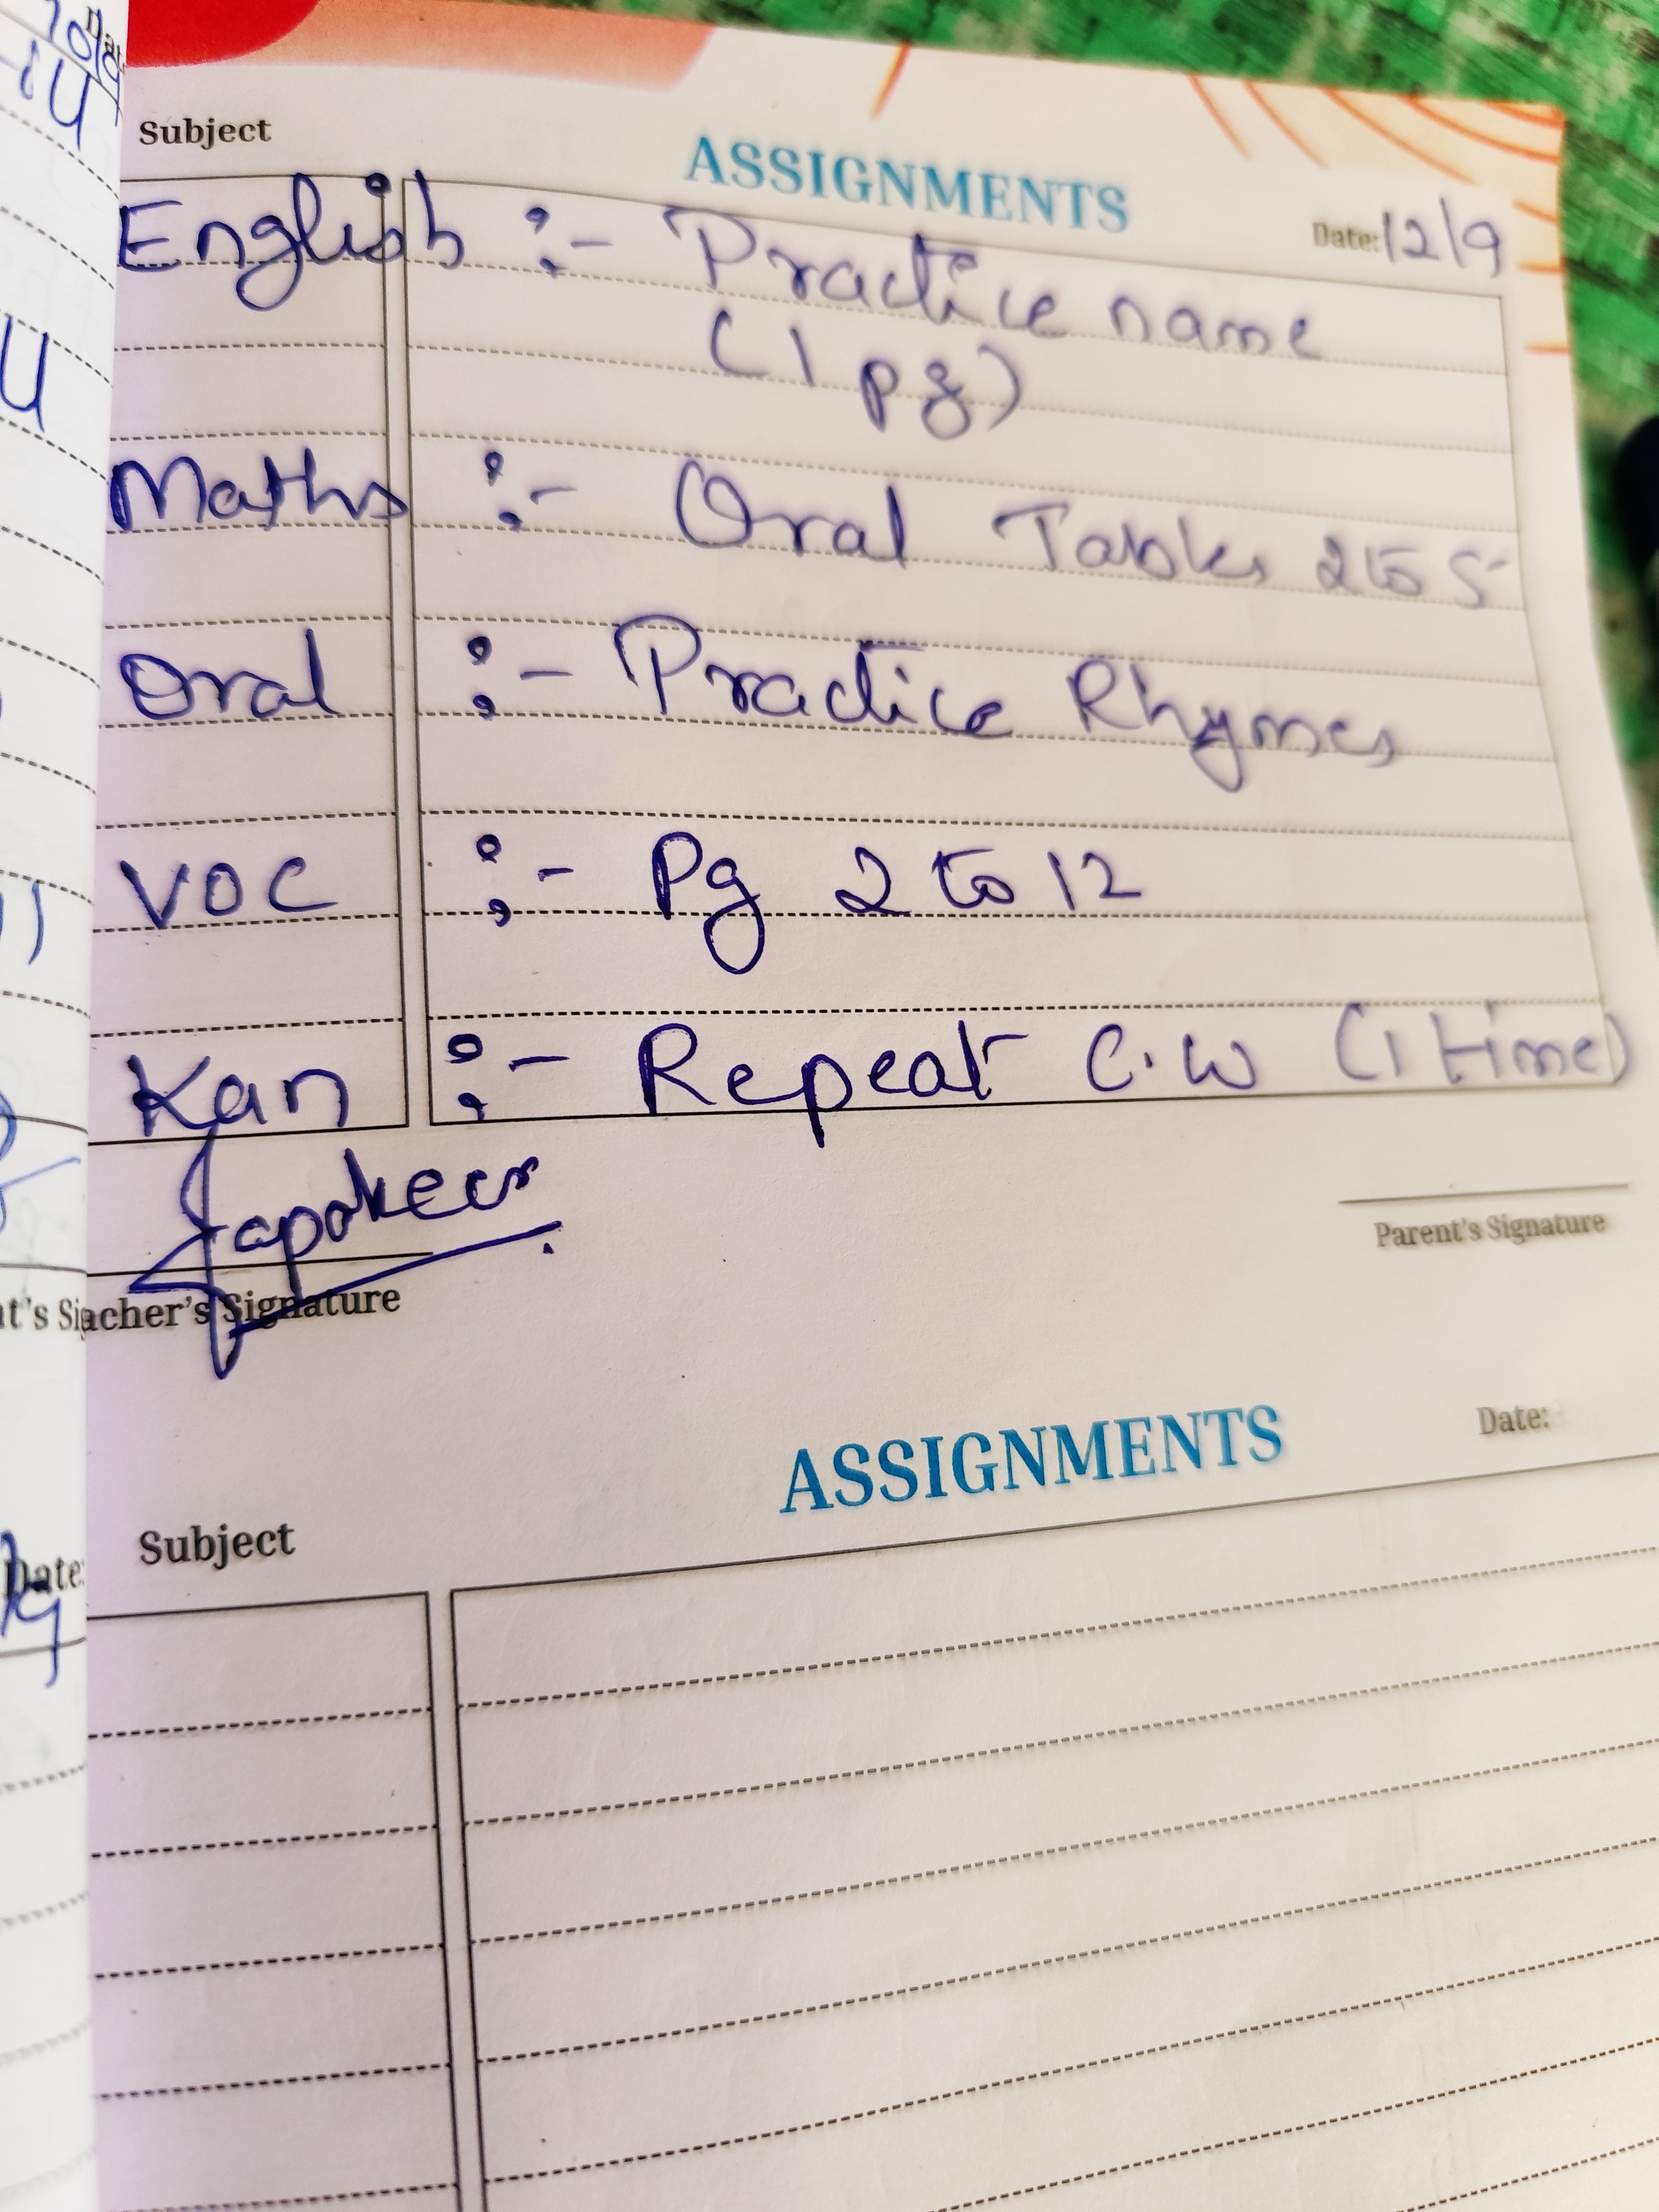 Subject
ASSIGNMENTS
Date: 12/9
English :- Practice name
(1 pg)
Maths :- Oral Tables 2 to 5
Oral :- Practice Rhymes
VOC :- Pg 2 to 12
Kan :- Repeat C.W (1 time)
Parent's Signature
acher's Signature
ASSIGNMENTS
Date:
Subject
Date: